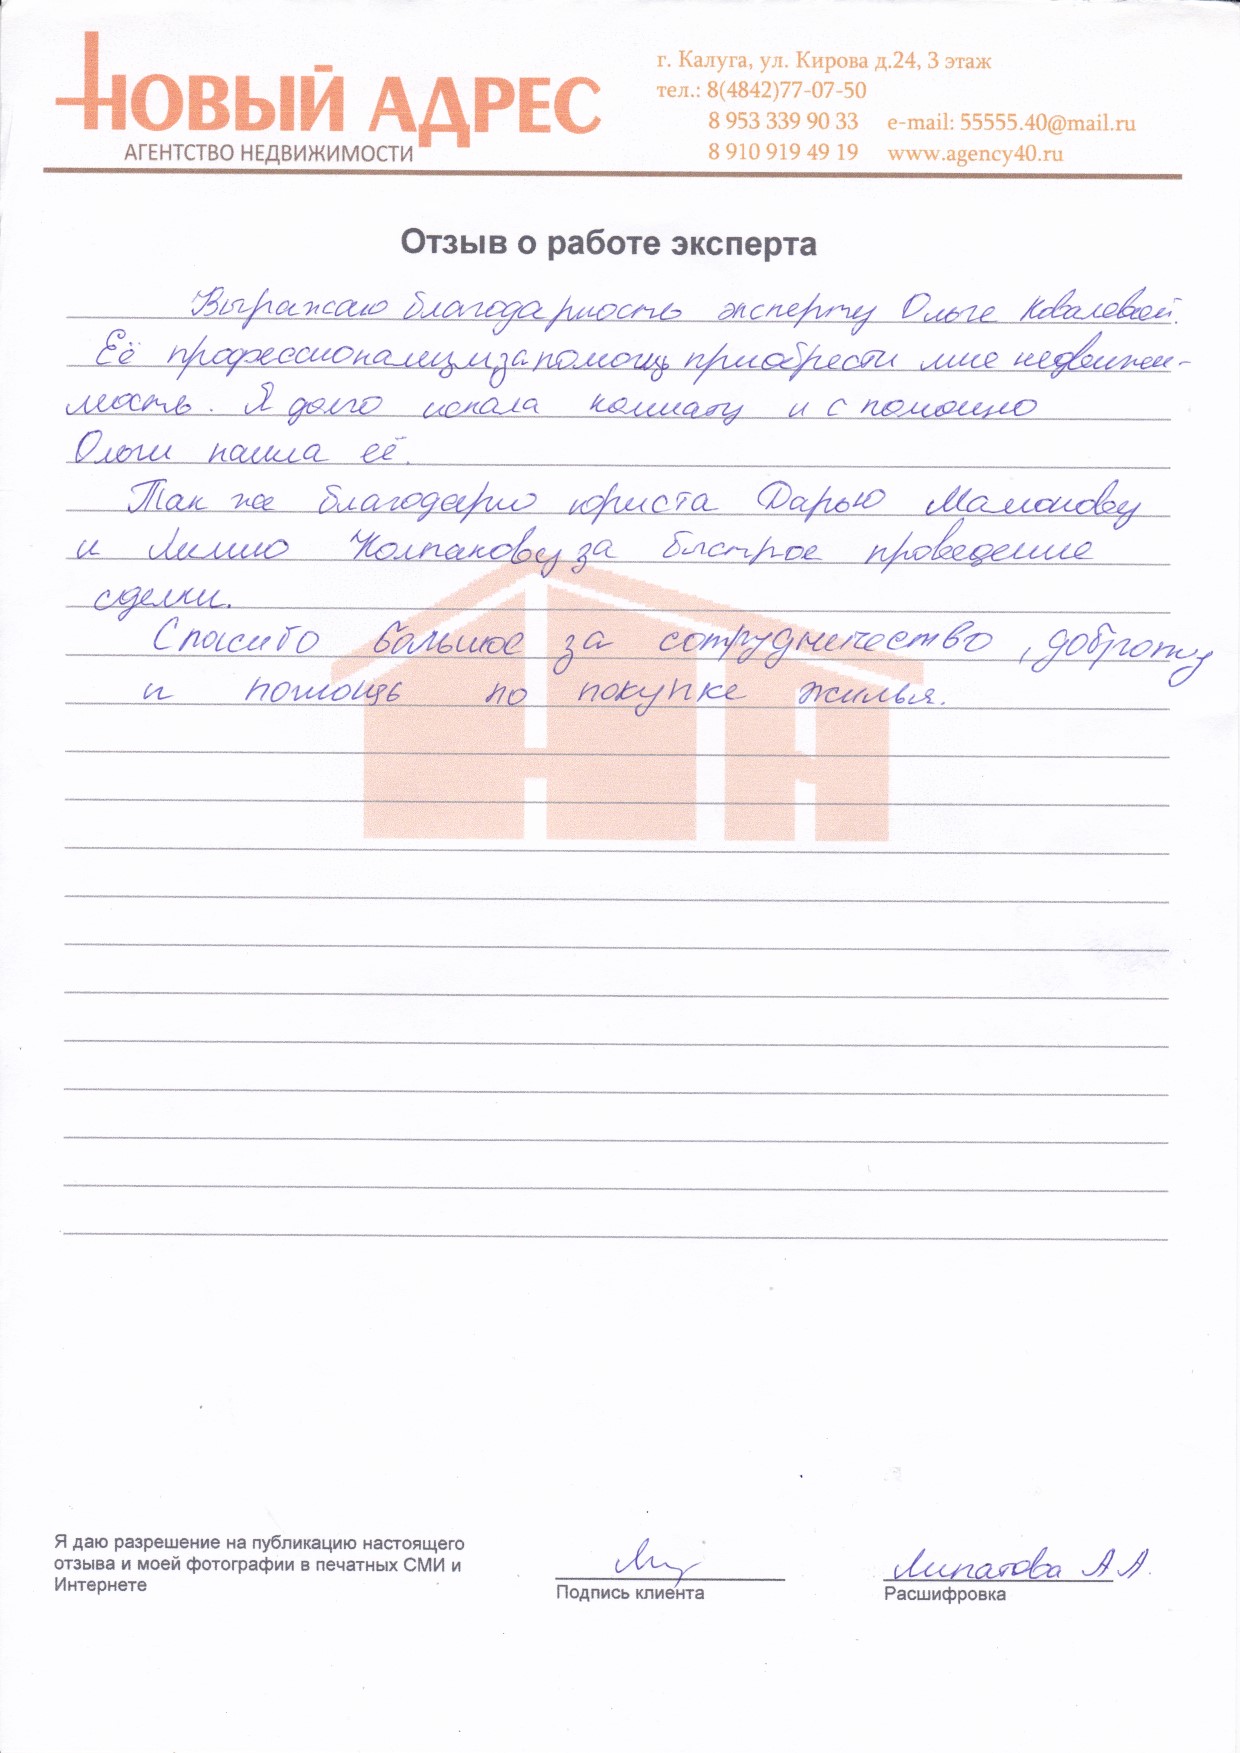 НОВЫЙ АДРЕС
АГЕНТСТВО НЕДВИЖИМОСТИ
г. Калуга, ул. Кирова д.24, 3 этаж
тел.: 8(4842)77-07-50
8 953 339 90 33 e-mail: 55555.40@mail.ru
8 910 919 49 19 www.agency40.ru
Отзыв о работе эксперта
Выражаю благодарность эксперту Ольге Ковалевой.
Её профессионализм за помощь приобрести мне недвижи-
мость. Я долго искала комнату и с помощью
Ольги нашла её.
Так же благодарю юриста Дарью Мамонову
и Лилию Колпакову за быстрое проведение
сделки.
Спасибо большое за сотрудничество, доброту
и помощь по покупке жилья.
Я даю разрешение на публикацию настоящего
отзыва и моей фотографии в печатных СМИ и
Интернете
Подпись клиента
Липатова А А.
Расшифровка